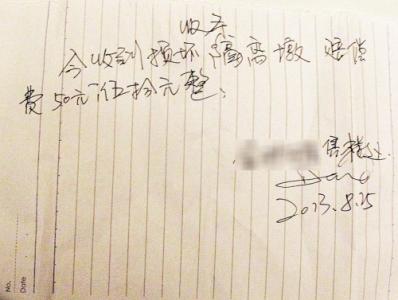 收条
今收到损坏隔离墩 赔偿
费50元,伍拾元整;
售楼处
2013.8.25
No.
Date